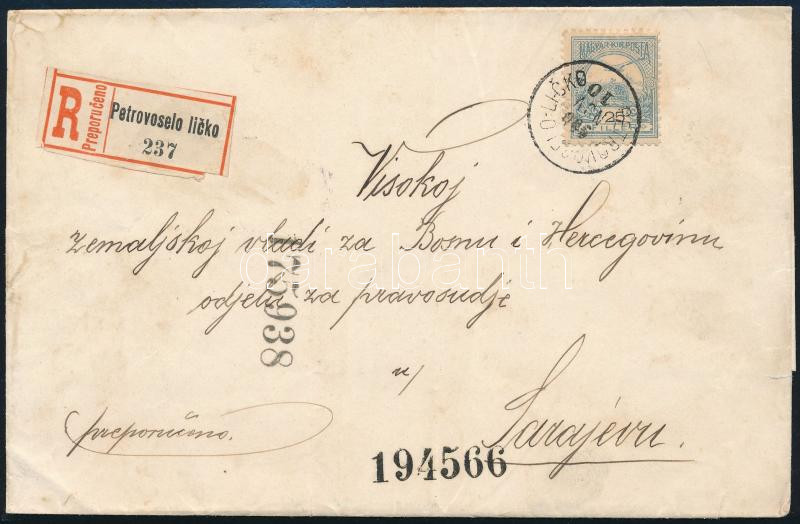 R
Preporučeno
Petrovoselo ličko
237
MAGYAR KIR. POSTA
25
Visokoj
zemaljskoj vladi za Bosnu i Hercegovinu
odjelu za pravosudje
u/
Sarajevu.
preporučeno.
194566
darabanth